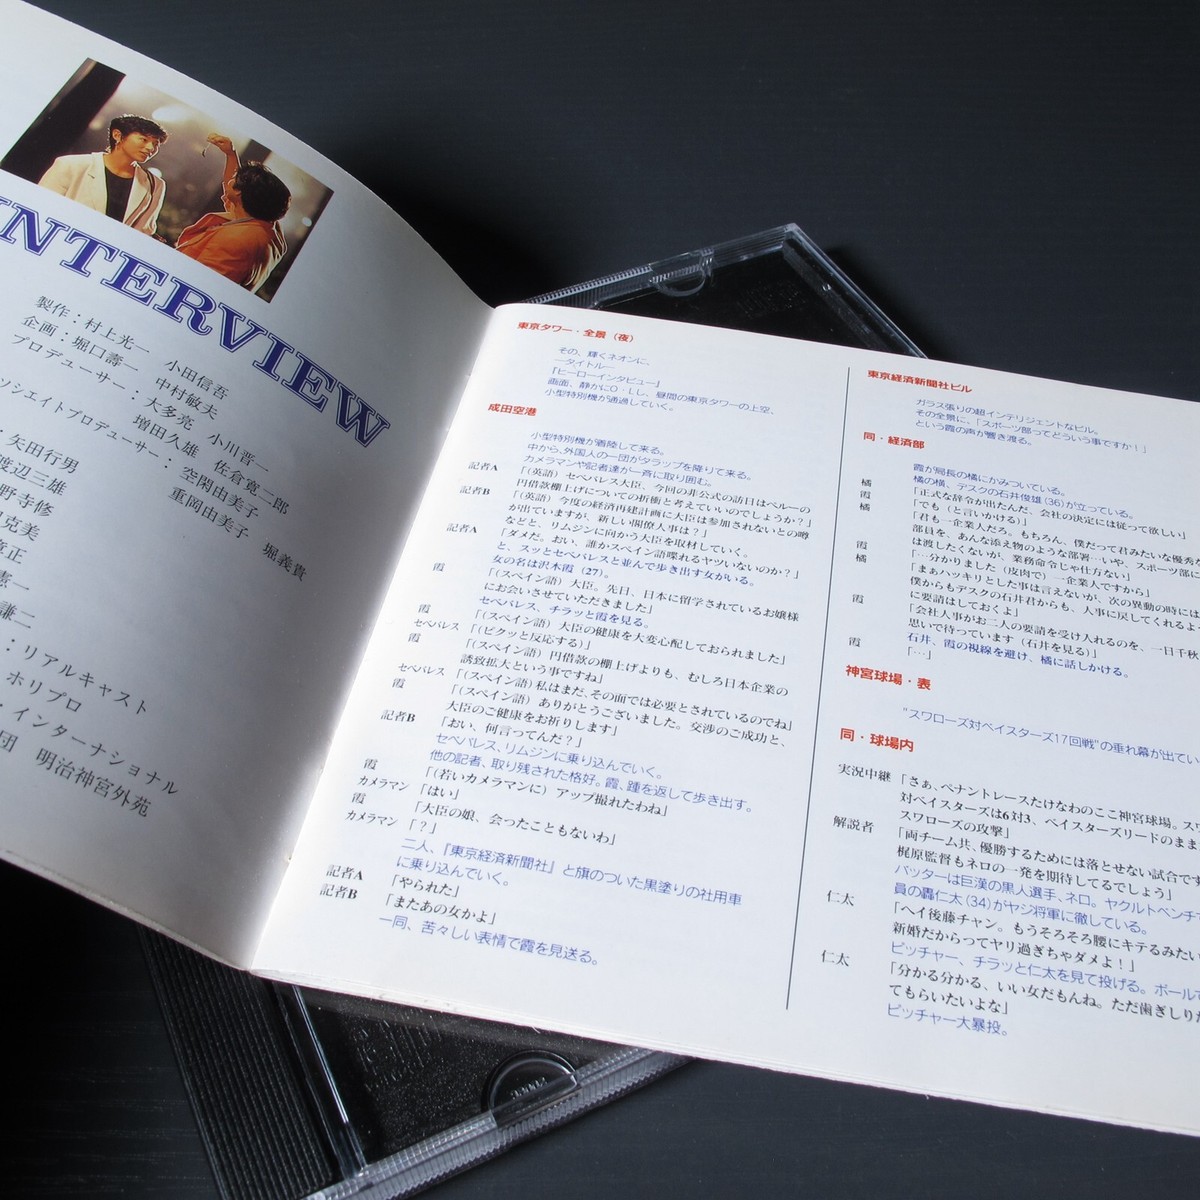 INTERVIEW
製作：村上光一　小田信吾
企画：堀口壽一　中村敏夫
プロデューサー：大多亮　小川晋一
増田久雄　佐倉寛二郎
ソシエイトプロデューサー：空閑由美子　堀義貴
重岡由美子
：矢田行男
渡辺三雄
野寺修
克美
正
憲一
謙二
：リアルキャスト
ホリプロ
・インターナショナル
団　明治神宮外苑
東京タワー・全景（夜）
その、輝くネオンに、
―タイトル―
「ヒーローインタビュー」
画面、静かにO・Lし、昼間の東京タワーの上空、
小型特別機が通過していく。
成田空港
小型特別機が着陸して来る。
中から、外国人の一団がタラップを降りて来る。
カメラマンや記者達が一斉に取り囲む。
記者A「（英語）セベバレス大臣、今回の非公式の訪日はペルーの
円借款棚上げについての折衝と考えていいのでしょうか？」
記者B「（英語）今度の経済再建計画に大臣は参加されないとの噂
が出ていますが、新しい閣僚人事は？」
などと、リムジンに向かう大臣を取材していく。
記者A「ダメだ。おい、誰かスペイン語喋れるヤツいないのか？」
と、スッとセベバレスと並んで歩き出す女がいる。
女の名は沢木霞（27）。
霞「（スペイン語）大臣。先日、日本に留学されているお嬢様
にお会いさせていただきました」
セベバレス、チラッと霞を見る。
霞「（スペイン語）大臣の健康を大変心配しておられました」
セベバレス「（ピクッと反応する）」
霞「（スペイン語）円借款の棚上げよりも、むしろ日本企業の
誘致拡大という事ですね」
セベバレス「（スペイン語）私はまだ、その面では必要とされているのでね」
霞「（スペイン語）ありがとうございました。交渉のご成功と、
大臣のご健康をお祈りします」
記者B「おい、何言ってんだ？」
セベバレス、リムジンに乗り込んでいく。
他の記者、取り残された格好。霞、踵を返して歩き出す。
霞「（若いカメラマンに）アップ撮れたわね」
カメラマン「はい」
霞「大臣の娘、会ったこともないわ」
カメラマン「？」
二人、『東京経済新聞社』と旗のついた黒塗りの社用車
に乗り込んでいく。
記者A「やられた」
記者B「またあの女かよ」
一同、苦々しい表情で霞を見送る。
東京経済新聞社ビル
ガラス張りの超インテリジェントなビル。
その全景に、「スポーツ部ってどういう事ですか！」
という霞の声が響き渡る。
同・経済部
霞が局長の橘にかみついている。
橘の横、デスクの石井俊儀（36）が立っている。
橘「正式な辞令が出たんだ、会社の決定には従って欲しい」
霞「でも（と言いかける）」
橘「君も一企業人だろ。もちろん、僕だって君みたいな優秀な
部員を、あんな添え物のような部署…いや、スポーツ部に
は渡したくないが、業務命令じゃ仕方ない」
霞「…分かりました（皮肉で）一企業人ですから」
橘「まぁハッキリとした事は言えないが、次の異動の時には
僕からもデスクの石井君からも、人事に戻してくれるよう
に要請はしておくよ」
霞「会社人事がお二人の要請を受け入れるのを、一日千秋
思いで待っています（石井を見る）」
石井、霞の視線を避け、橘に話しかける。
霞「…」
神宮球場・表
“スワローズ対ベイスターズ17回戦”の垂れ幕が出てい
同・球場内
実況中継「さぁ、ペナントレースたけなわのここ神宮球場。スワ
対ベイスターズは6対3、ベイスターズリードのまま
スワローズの攻撃」
解説者「両チーム共、優勝するためには落とせない試合です
梶原監督もネロの一発を期待してるでしょう」
バッターは巨漢の黒人選手、ネロ。ヤクルトベンチ
員の轟仁太（34）がヤジ将軍に徹している。
仁太「ヘイ後藤チャン。もうそろそろ腰にキテるみたい
新婚だからってヤリ過ぎちゃダメよ！」
ピッチャー、チラッと仁太を見て投げる。ボール
仁太「分かる分かる、いい女だもんね。ただ歯ぎしりだ
てもらいたいよな」
ピッチャー大暴投。